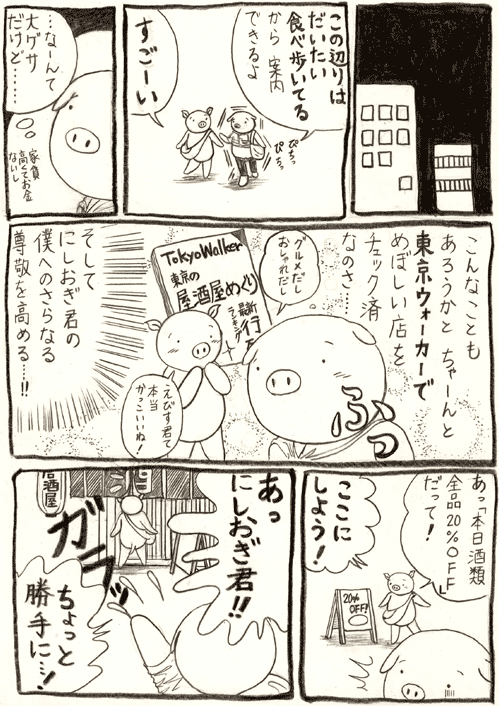 この辺りは
だいたい
食べ歩いてる
から 案内
できるよ
ぴちっ
ぴちっ
すごーい
…なーんて
大ゲサ
だけど……
家賃
高くてお金
ないし
こんなことも
あろうかと ちゃーんと
東京ウォーカーで
めぼしい店を
チェック済
なのさ…
ふっ
グルメだし
おしゃれだし
Tokyo Walker
東京の
居酒屋めぐり
最新
ランキング
行
えびす君て
本当
かっこいいね!
そして
にしおぎ君の
僕へのさらなる
尊敬を高める…!!
あっ「本日酒類
全品20%OFF」
だって!
20%
OFF!
ここに
しよう!
あっ
にしおぎ君!!
居酒屋
ガラッ
ちょっと
勝手に…!